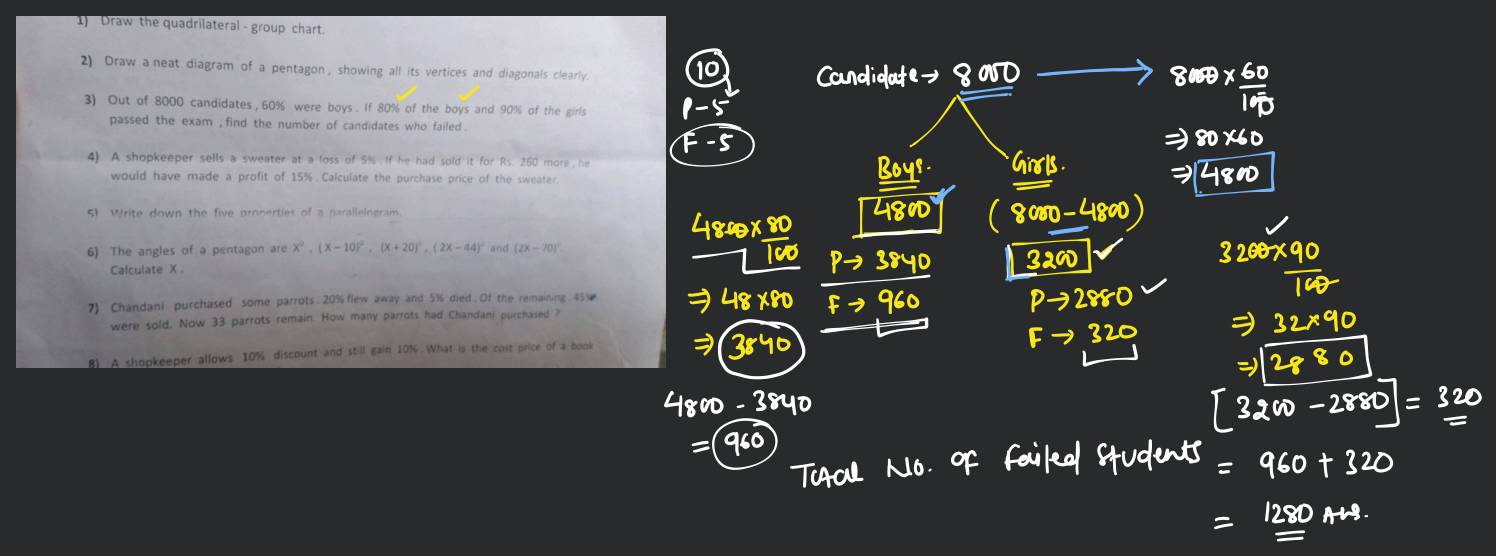 1) Draw the quadrilateral - group chart.
2) Draw a neat diagram of a pentagon, showing all its vertices and diagonals clearly.
3) Out of 8000 candidates, 60% were boys. If 80% of the boys and 90% of the girls
passed the exam, find the number of candidates who failed.
4) A shopkeeper sells a sweater at a loss of 5%. If he had sold it for Rs. 260 more, he
would have made a profit of 15%. Calculate the purchase price of the sweater.
5) Write down the five properties of a parallelogram.
6) The angles of a pentagon are X°, (X – 10)°, (X + 20)°, (2X – 44)° and (2X – 70)°.
Calculate X.
7) Chandani purchased some parrots. 20% flew away and 5% died. Of the remaining, 45%
were sold. Now 33 parrots remain. How many parrots had Chandani purchased ?
8) A shopkeeper allows 10% discount and still gain 10%. What is the cost price of a book
10
P-5
F-5
Candidate → 8000
8000 × 60/100
⇒ 80 × 60
⇒ 4800
Boys.
4800
P → 3840
F → 960
Girls.
(8000 - 4800)
3200
P → 2880
F → 320
4800 × 80/100
⇒ 48 × 80
⇒ 3840
4800 - 3840
= 960
3200 × 90/100
⇒ 32 × 90
⇒ 2880
[3200 - 2880] = 320
Total No. of failed students = 960 + 320
= 1280 Ans.